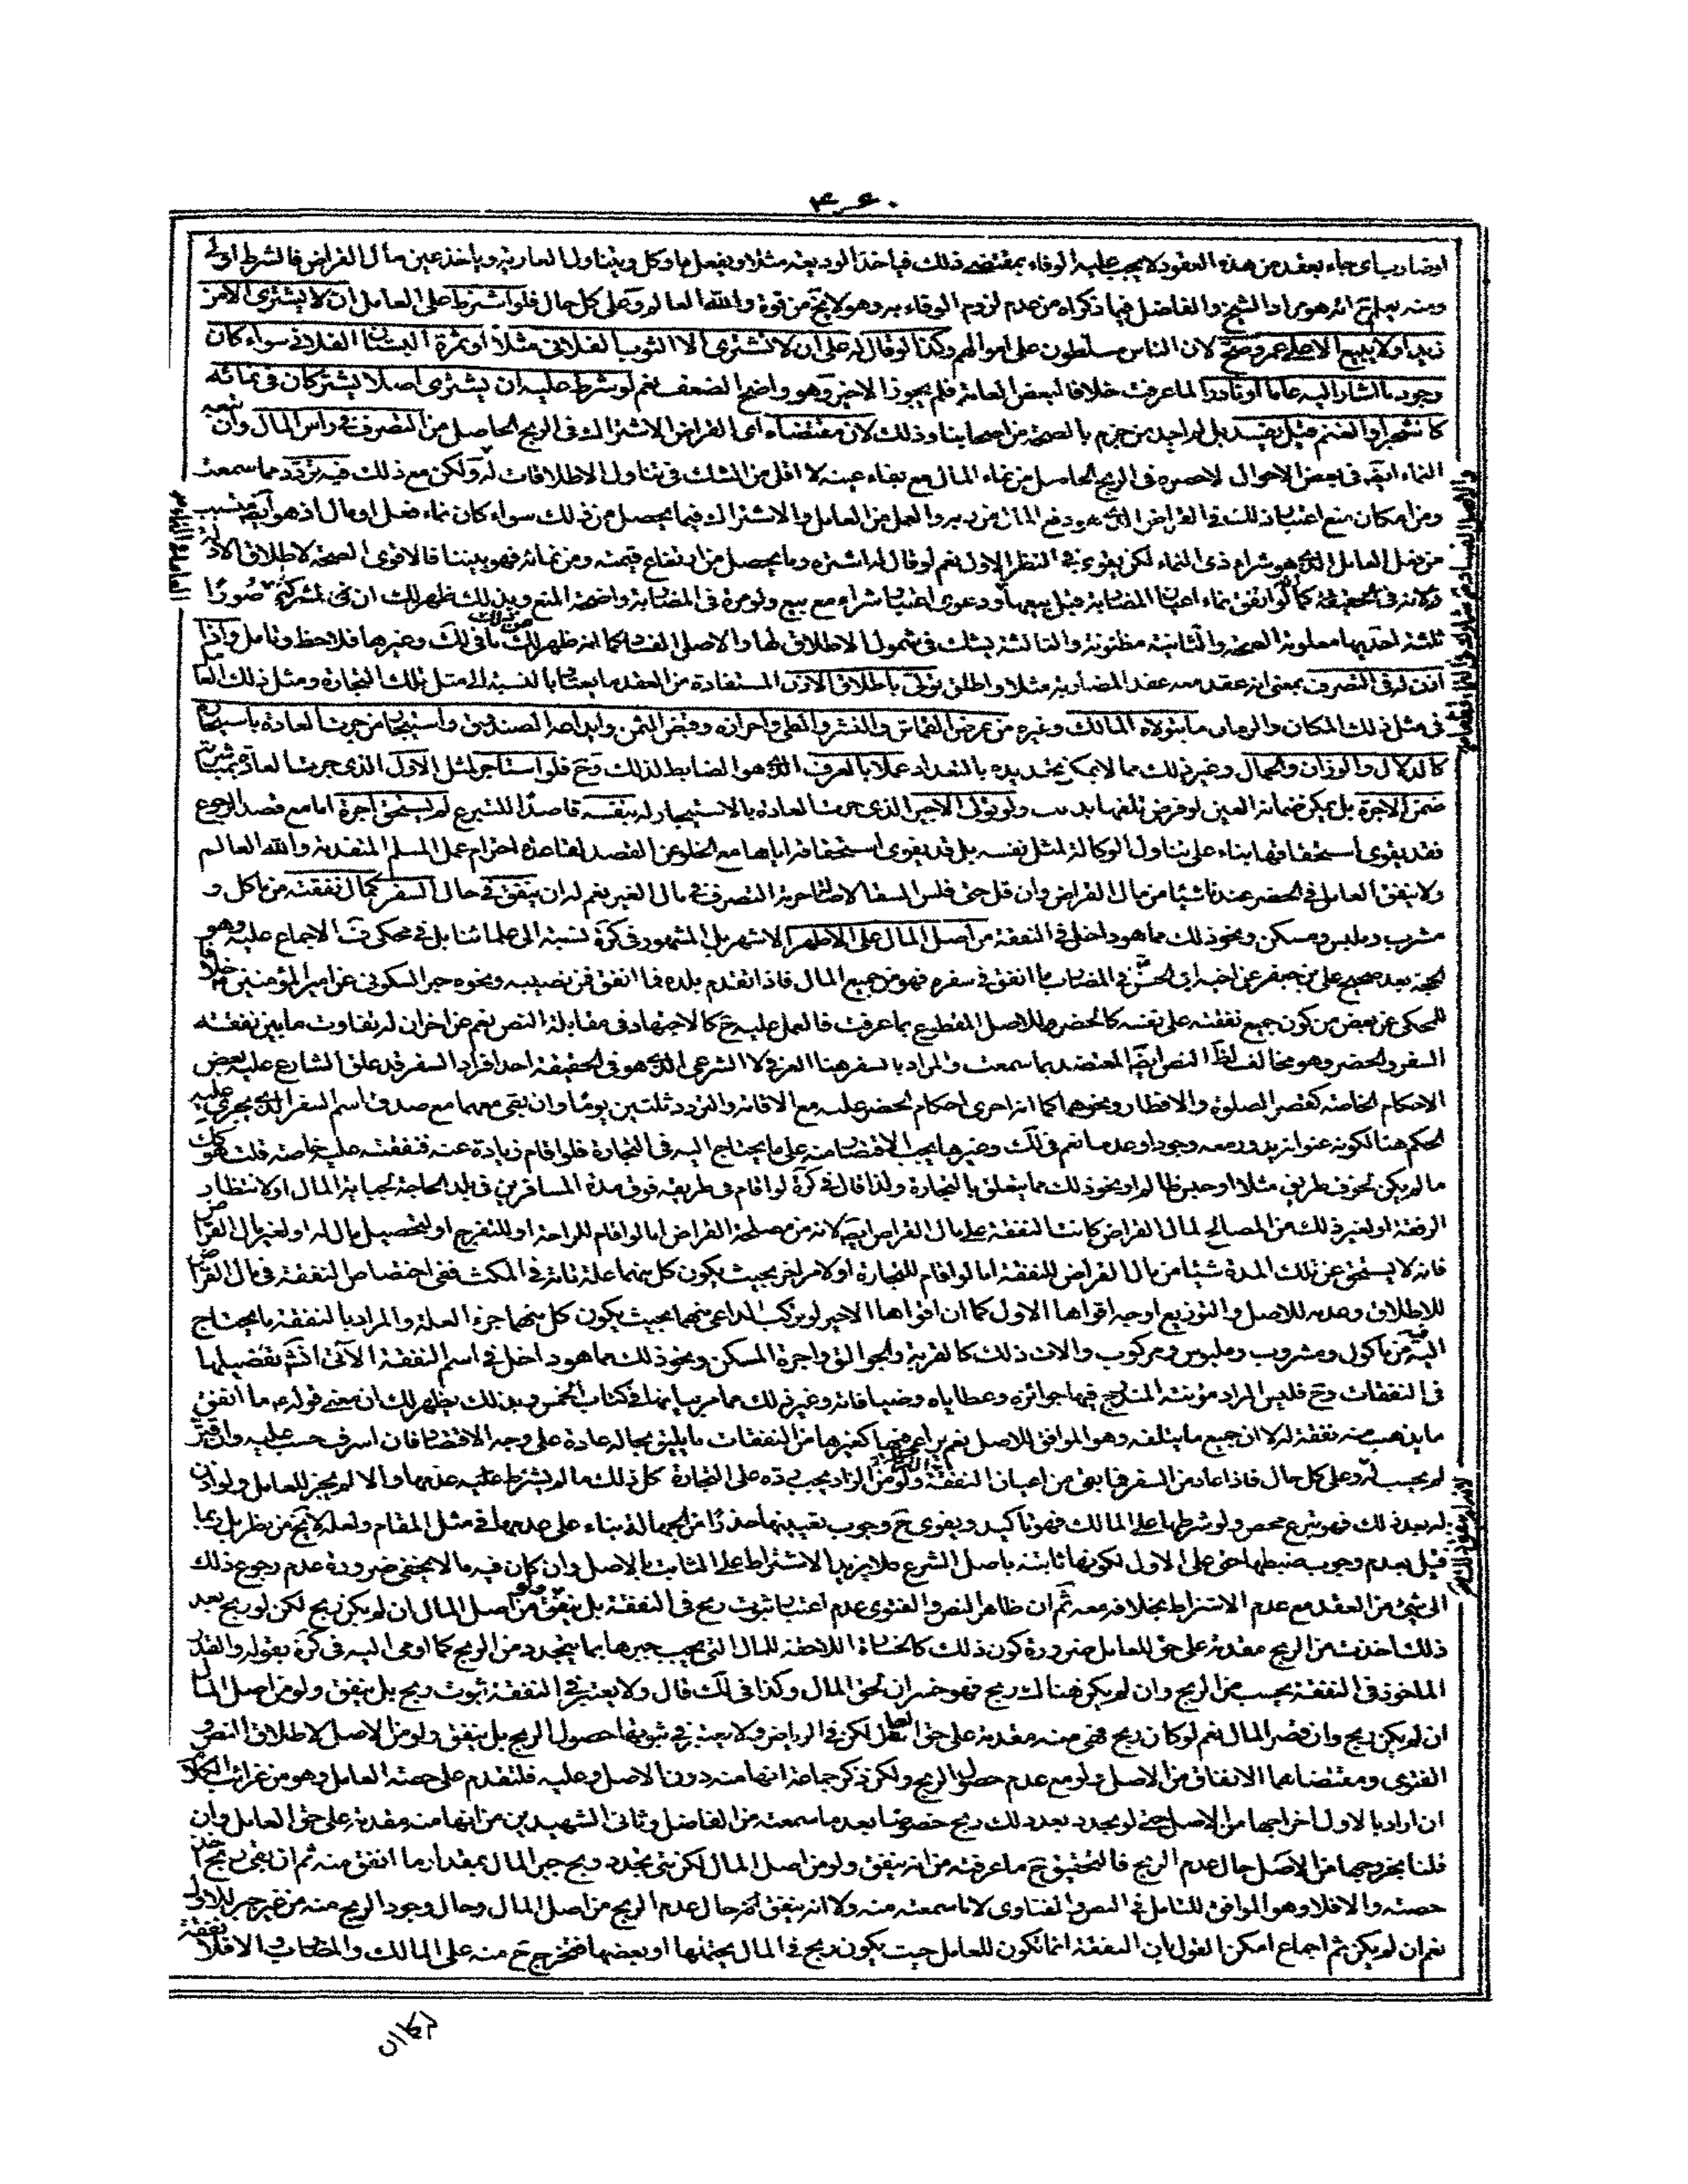 او ضاربه اى جاء بعقد من هذه العقود لا يجب عليه الوفاء بمقتضى ذلك فياخذ الوديعة مثلا ويفعل ما وكل ويتناول العارية وياخذ عين مال القراض فالشرط اولى
ومنه يعلم مراد الشيخ والفاضل فيما ذكراه من عدم لزوم الوفاء به وهو لا يخ من قوة والله العالم وعلى كل حال فلو اشترط على العامل ان لا يشترى الا من
زيد او لا يبيع الا على عمرو صح لان الناس مسلطون على اموالهم وكذا لو قال له على ان لا تشترى الا الثوب الفلانى مثلا او ثمرة البستان الفلانى سواء كان
وجود ما اشار اليه عاما او نادرا لما عرفت خلافا لبعض العامة فلم يجوز الاخير وهو واضح الضعف نعم لو شرط عليه ان يشترى اصلا يشتركان فى نمائه
كالشجر او الغنم قيل يفسد بل لم اجد من جزم بالصحة من اصحابنا وذلك لان مقتضاه اى القراض الاشتراك فى الربح الحاصل من التصرف فى راس المال وان
النماء ايضه فى بعض الاحوال لاحصره فى الربح الحاصل من نماء المال مع بقاء عينه لا اقل من الشك فى تناول الاطلاقات له ولكن مع ذلك فيه تردد مما سمعت
ومن امكان منع اعتبار ذلك فى القراض الذى هو دفع المال من ربه والعمل من العامل والاشتراك فيما يحصل من ذلك سواء كان نماء فعل او مال اذ هو ايضه مسبب
من فعل العامل الذى هو شراء ذى النماء لكن يقوى فى النظر الاول نعم لو قال له اشتره وما يحصل من ارتفاع قيمته ومن نمائه فهو بيننا فالاقوى الصحة لاطلاق الادلة
ولانه فى الحقيقة كما لو اتفق نماء اعيان المضاربة قبل بيعها ودعوى اعتبار شراء مع بيع ولو مرة فى المضاربة واضحة المنع وبذلك ظهر لك ان فى المشركة صورا
ثلثة احديها معلومة الصحة والثانية مظنونة والثالثة يشك فى شمول الاطلاق لها والاصل الفساد كما انه ظهر لك من ذلك ما فى لك وغيرها فلاحظ وتامل واذا
اذن له فى التصرف بمعنى انه عقد معه عقد المضاربة مثلا واطلق تولى باطلاق الاذن المستفادة من العقد ما يعتاد بالنسبة الى مثل تلك التجارة ومثل ذلك العامل
فى مثل ذلك المكان والزمان ما يتولاه المالك وغيره من عرض القماش والنشر والطى واحرازه وقبض الثمن وايداعه الصندوق واستيجار من جرت العادة باستيجاره
كالدلال والوزان والحمال وغير ذلك مما لا يمكن تحديده بالتعداد عملا بالعرف الذى هو الضابط لذلك وح فلو استاجر لمثل الاول الذى جرت العادة بمباشرته
ضمن الاجرة بل يمكن ضمانه العين لو فرض تلفها بذلك ولو تولى الاخير الذى جرت العادة بالاستيجار له بنفسه قاصدا للتبرع لم يستحق اجرة اما مع قصد الرجوع
فقد يقوى استحقاقها بناء على تناول الوكالة لمثل نفسه بل قد يقوى استحقاقه اياها مع الخلو عن القصد لقاعدة احترام عمل المسلم المتقدمة والله العالم
ولا ينفق العامل فى الحضر عندنا شيئا من مال القراض وان قل حتى فلس السقاء لاصالة حرمة التصرف فى مال الغير نعم له ان ينفق فى حال السفر كمال نفقته من ماكل و
مشرب وملبس ومسكن ونحو ذلك مما هو داخل فى النفقة من اصل المال على الاظهر الاشهر بل المشهور فى كرة نسبته الى علمائنا بل فى محكى ف الاجماع عليه وهو
الحجة بعد صحيح على بن جعفر عن اخيه ابى الحسن فى المضارب ما انفق فى سفره فهو من جميع المال فاذا تقدم بلده فما انفق فمن نصيبه ونحوه خبر السكونى عن امير المؤمنين خلافا
للمحكى عن بعض من كون جميع نفقته على نفسه كالحضر للاصل المقطوع بما عرفت فالعمل عليه ح كالاجتهاد فى مقابلة النص نعم عن اخر ان له تفاوت ما بين نفقته
السفر والحضر وهو مخالف لظ النص ايضا المعتضد بما سمعت والمراد بالسفر هنا العرفى لا الشرعى الذى هو فى الحقيقة احد افراد السفر قد علق الشارع عليه بعض
الاحكام الخاصة كقصر الصلوة والافطار ونحوهما كما انه اجرى احكام الحضر عليه مع الاقامة والتردد ثلثين يوما وان بقى معهما مع صدق اسم السفر الذى يجرى عليه
الحكم هنا لكونه عنوانه يدور معه وجودا وعدما نعم فى لك وغيرها يجب الاقتصار منه على ما يحتاج اليه فى التجارة فلو اقام زيادة عنه فنفقته عليه خاصة قلت هو كذلك
ما لم يكن لخوف طريق مثلا او حبس ظالم او نحو ذلك مما يتعلق بالتجارة ولذا قال فى كرة لو اقام فى طريقه فوق مدة المسافرين فى بلد للحاجة لجباية المال او لانتظار
الرفقة او لغير ذلك من المصالح لمال القراض كانت النفقة على مال القراض ايضه لانه من مصلحة القراض اما لو اقام للراحة او للتفرج او لتحصيل مال له او لغير مال القراض
فانه لا يستحق عن تلك المدة شيئا من مال القراض للنفقة اما لو اقام للتجارة او لامر اخر بحيث يكون كل منهما علة تامة فى المكث ففى اختصاص النفقة فى مال القراض
للاطلاق وعدمه للاصل والتوزيع اوجه اقواها الاول كما ان اقواها الاخير لو تركب الداعى منهما بحيث يكون كل منهما جزء العلة والمراد بالنفقة ما يحتاج
اليه فيه من ماكول ومشروب وملبوس ومركوب والات ذلك كالقربة والجوالق واجرة المسكن ونحو ذلك مما هو داخل فى اسم النفقة الاتى انشم تفصيلها
فى النفقات وح فليس المراد مؤنته المندرج فيها جوائزه وعطاياه وضيافاته وغير ذلك مما مر بيانها فى كتاب الخمس وبذلك يظهر لك ان معنى قوله ع ما انفق
ما يذهب منه نفقة له لا ان جميع ما يتلفه وهو الموافق للاصل نعم يراعى فيها كغيرها من النفقات ما يليق بحاله عادة على وجه الاقتصاد فان اسرف حسب عليه وان قتر
لم يحسب له وعلى كل حال فاذا عاد من السفر فما بقى من اعيان النفقة ولو من الزاد يجب رده على التجارة كل ذلك ما لم يشترط عليه عدمها والا لم يجز للعامل ولو اذن
له بعد ذلك فهو تبرع محض ولو شرطها على المالك فهو تاكيد ويقوى ح وجوب تعيينها حذرا من الجهالة بناء على قدحها فى مثل المقام ولعله لا يخ من نظر بل ربما
قيل بعدم وجوب ضبطها حتى على الاول لكونها ثابتة باصل الشرع فلا يزيد الاشتراط على الثابت بالاصل وان كان فيه ما لا يخفى ضرورة عدم رجوع ذلك
الى شئ من العقد مع عدم الاشتراط بخلافه معه ثم ان ظاهر النص والفتوى عدم اعتبار ثبوت ربح فى النفقة بل ينفق ولو من اصل المال ان لم يكن ربح لكن لو ربح بعد
ذلك اخذت من الربح مقدمة على حق العامل ضرورة كون ذلك كالخسارة اللاحقة للمال التى يجب جبرها بما يتجدد من الربح كما اومى اليه فى كرة بقوله والقدر
الماخوذ فى النفقة يحسب من الربح وان لم يكن هناك ربح فهو خسران لحق المال وكذا فى لك قال ولا يعتبر فى النفقة ثبوت ربح بل ينفق ولو من اصل المال
ان لم يكن ربح وان قصر المال نعم لو كان ربح فهى منه مقدمة على حق العامل لكن فى الرياض ولا يعتبر فى ثبوتها حصول الربح بل ينفق ولو من الاصل لاطلاق النص و
الفتوى ومقتضاهما الانفاق من الاصل ولو مع عدم حصول الربح ولكن ذكر جماعة انها منه دون الاصل وعليه فلتقدم على حصة العامل وهو من غرائب الكلام
ان اراد بالاول اخراجها من الاصل حتى لو تجدد بعد ذلك ربح خصوصا بعد ما سمعت من الفاضل وثانى الشهيدين من انها منه مقدمة على حق العامل وان
قلنا بخروجها من الاصل حال عدم الربح فالتحقيق ح ما عرفته من انه ينفق ولو من اصل المال لكن متى تجدد ربح جبر المال بمقدار ما انفق منه ثم ان بقى ربح اخذ
حصته والا فلا وهو الموافق للتامل فى النص والفتاوى لا ما سمعته منه ولا انه ينفق له حال عدم الربح من اصل المال وحال وجود الربح منه من غير جبر للاول
نعم ان لم يكن ثم اجماع امكن القول بان النفقة انما تكون للعامل حيث يكون ربح فى المال يحتملها او بعضها فتخرج ح منه على المالك والمضارب والا فلا نفقة